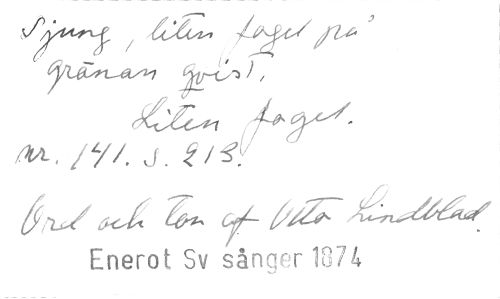 Sjung, liten fogel på
grönan qvist.
Liten fogel.
nr. 141. s. 213.
Ord och ton af Otto Lindblad.
Enerot Sv sånger 1874